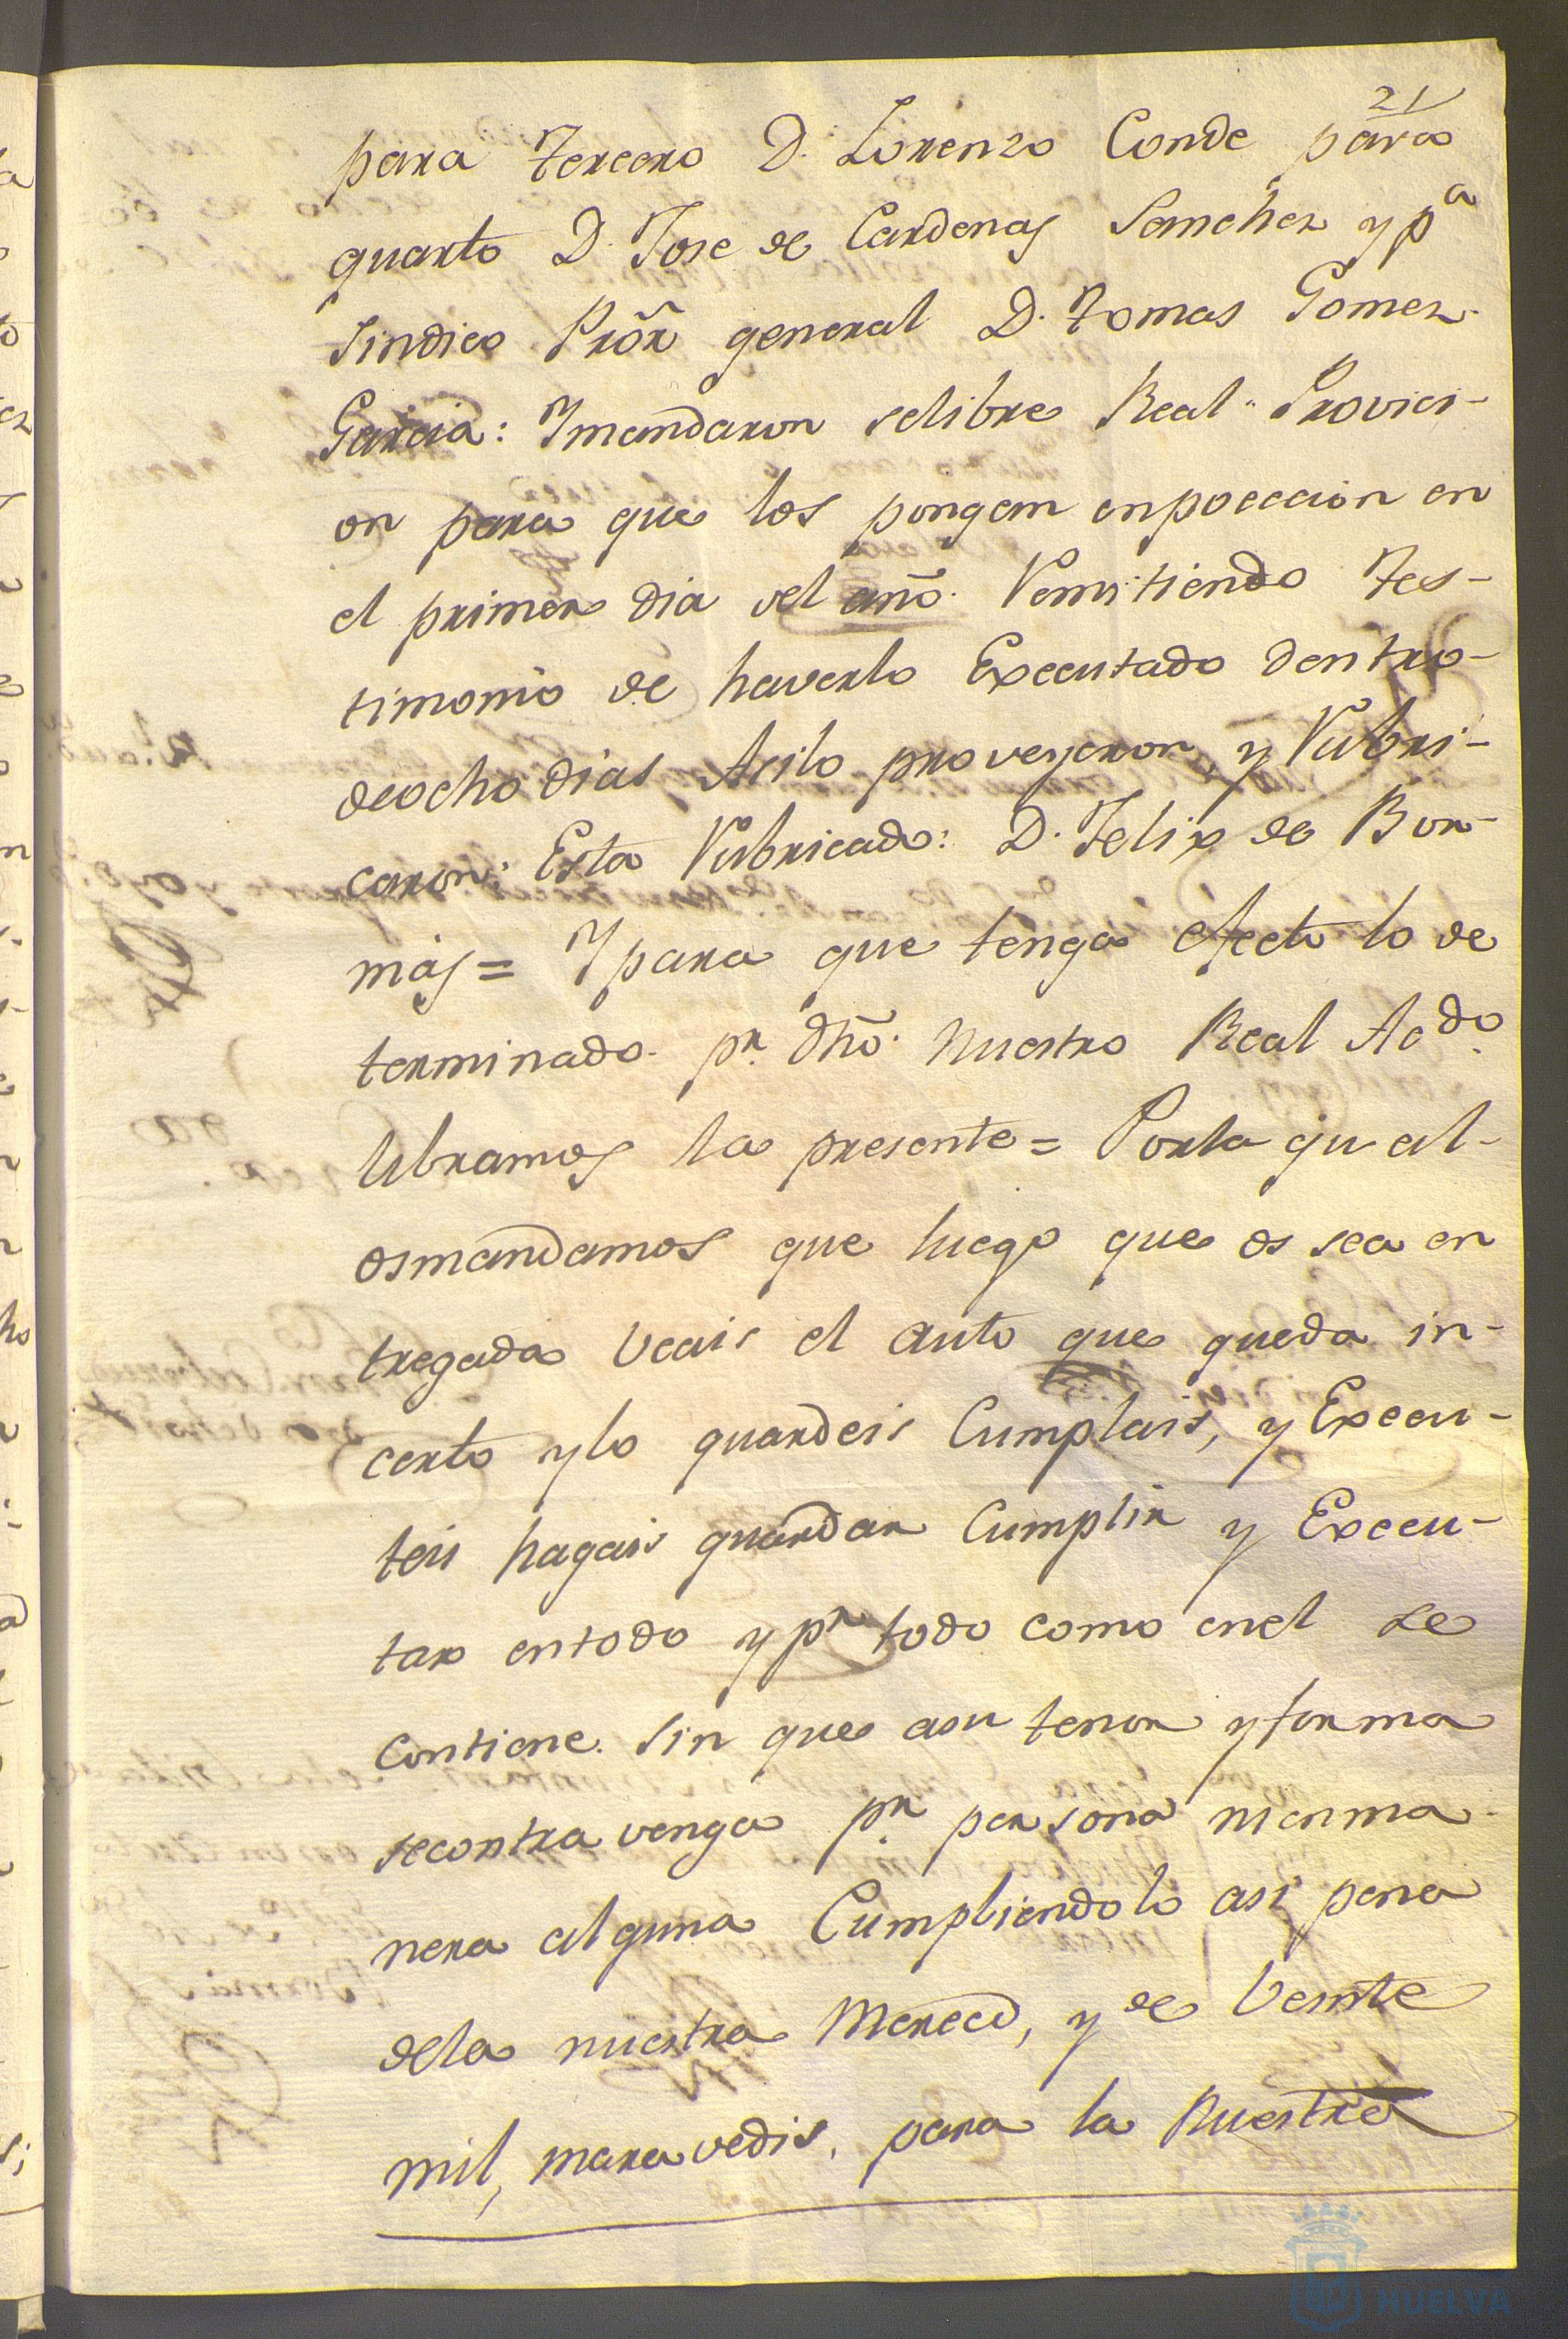 21
para tercero D. Lorenzo Conde para
quarto D. Jose de Cardenas Sanchez y pª
Sindico Prõr general D. tomas Gomez
Garcia: Ymandaron selibre Real Provici-
on para que los pongan enpoeccion en
el primer dia del año. Remitiendo Tes-
timonio de haverlo Executado dentro
deocho dias Asilo proveyeron, y Rubri-
caron: Esta Rubricado: D. Felix de Bor-
mas = Ypara que tenga efecto lo de
terminado pr. dhõ. nuestro Real Acdo.
libramos la presente = Porla qual
osmandamos que luego que os sea en
tregada Veais el auto que queda in-
certo ylo guardeis Cumplais, y Execu-
teis hagais guardar Cumplir y Execu-
tar entodo y pr todo como enel se
contiene. Sin que asu tenor y forma
secontravenga pr. persona nenma-
nera alguna Cumpliendolo asi pena
dela nuestra Merced, y de Veinte
mil, maravedis, para la nuestra
HUELVA